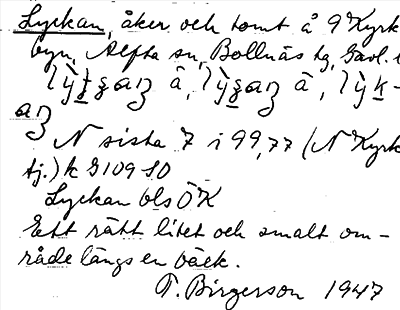 Lyckan, åker och tomt å 9 Kyrk
byn, Alfta sn, Bollnäs tg, Gävl. l
å, å,
N sista 7 i 99,77 (N Kyrk
tj.) k G109 SO
Lyckan bls ÖK
Ett rätt litet och smalt om-
råde längs en bäck.
T. Birgerson 1947